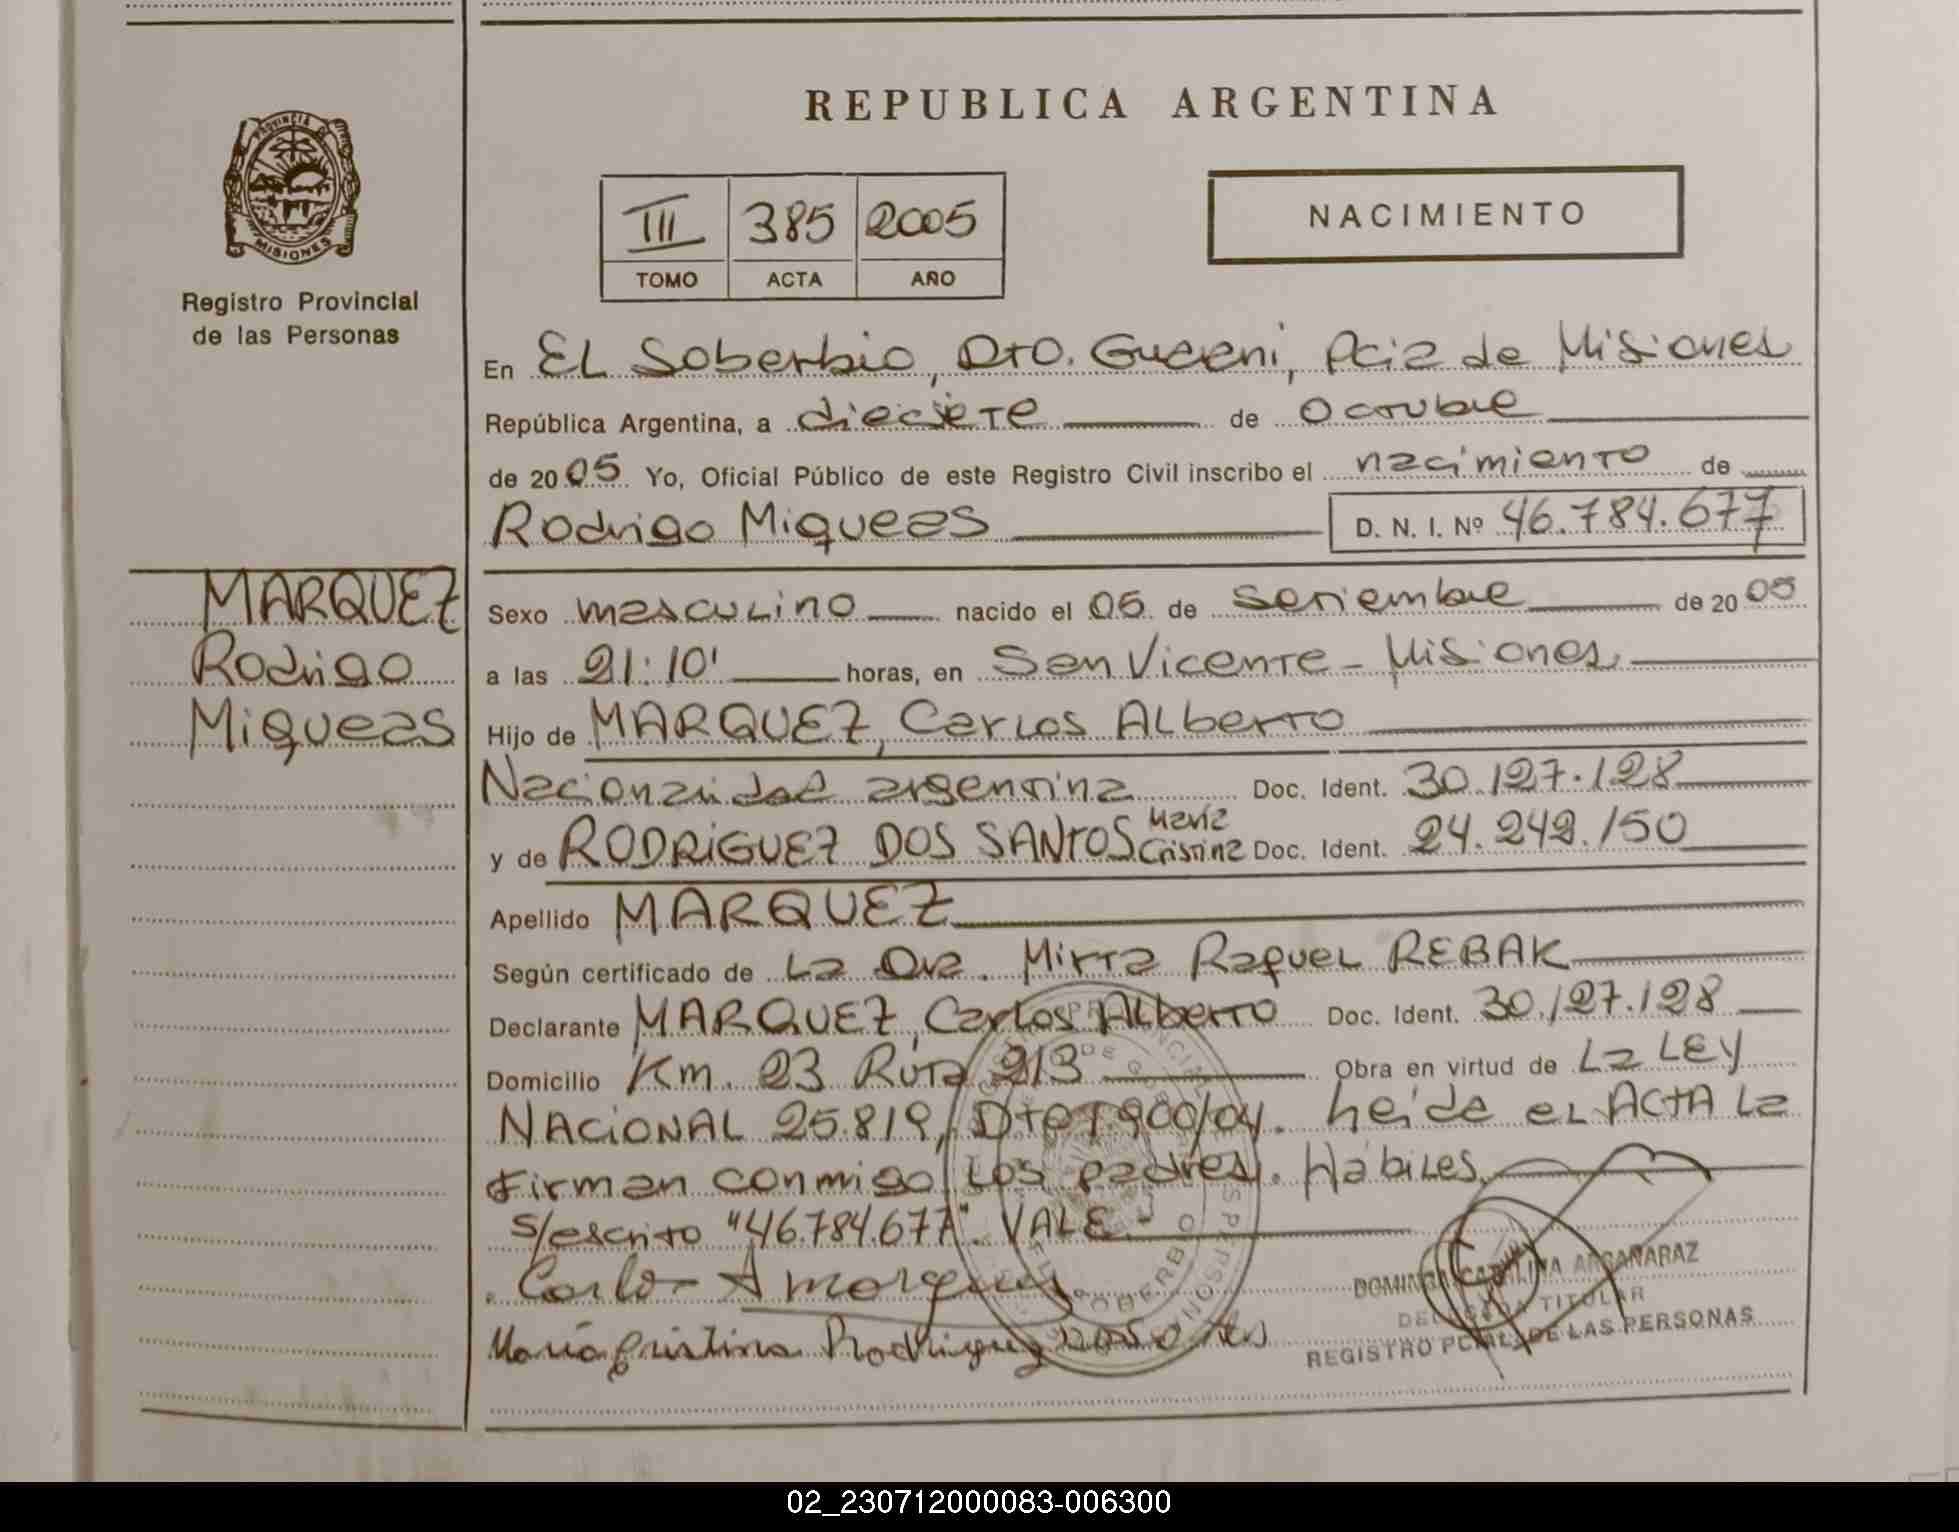 REPUBLICA ARGENTINA
PROVINCIA DE
MISIONES
Registro Provincial
de las Personas
III 385 2005
TOMO ACTA AÑO
NACIMIENTO
En EL Soberbio, Dto. Guarani, Pcia de Misiones
República Argentina, a diecisiete de Octubre
de 2005 Yo, Oficial Público de este Registro Civil inscribo el nacimiento de
Rodrigo Miqueas D. N. I. Nº 46.784.677
MARQUEZ
Rodrigo
Miqueas
Sexo masculino nacido el 05 de Setiembre de 2005
a las 21:10' horas, en San Vicente - Misiones.
Hijo de MARQUEZ, Carlos ALberto
Nacionalidad argentina Doc. Ident. 30.127.128
y de RODRIGUEZ DOS SANTOS Maria Cristina Doc. Ident. 24.242.150
Apellido MARQUEZ
Según certificado de La Dra. Mirta Raquel REBAK
Declarante MARQUEZ, Carlos Alberto Doc. Ident. 30.127.128
Domicilio Km. 23 Ruta 213 Obra en virtud de La LEY
NACIONAL 25.819, Dto 1.900/04. Leida el ACTA La
Firman conmigo Los padres. Hábiles.
S/escrito "46.784.677". VALE.-
Carlos A marquez
María Cristina Rodriguez
DOMINGA CATALINA ARGAÑARAZ
DELEGADA TITULAR
REGISTRO PCIAL. DE LAS PERSONAS
02_230712000083-006300